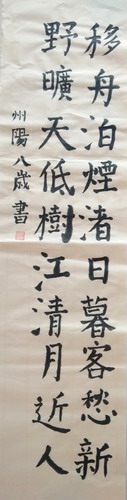 移舟泊煙渚日暮客愁新
野曠天低樹江清月近人
州陽八歲書